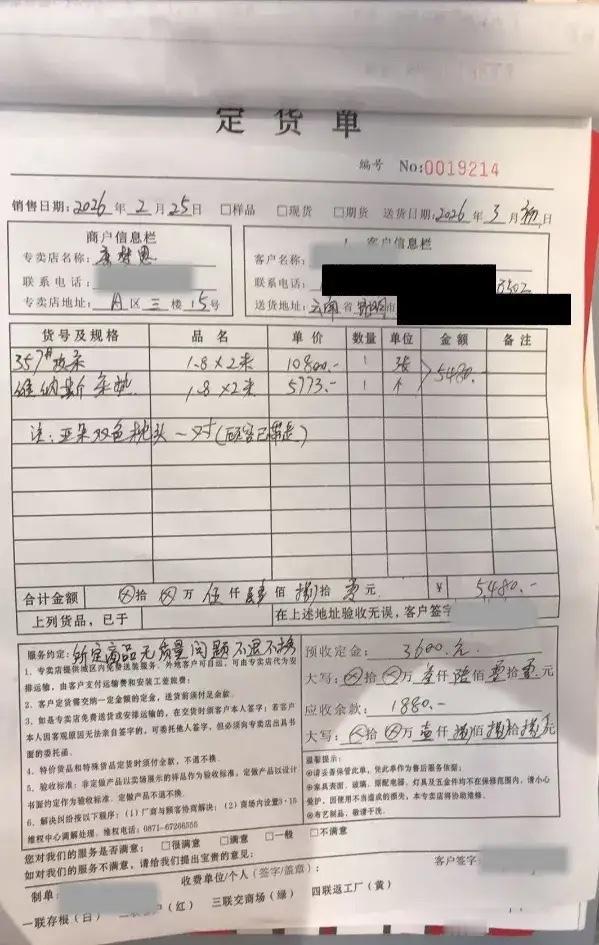 定货单
编号 No:0019214
销售日期:2026年2月25日 □样品 □现货 □期货 送货日期:2026年3月初日
商户信息栏
专卖店名称:康梦思
联系电话:
专卖店地址:A区三楼15号
客户信息栏
客户名称:
联系电话: 3502
送货地址:云南省昆明市
货号及规格 品名 单价 数量 单位 金额 备注
357# 1.8×2米 10800.- 1 张 5480.-
维纳斯床垫 1.8×2米 5773.- 1 个
注:亚朵双色枕头一对(顾客已带走)
合计金额 ⊗拾⊗万伍仟肆佰捌拾零元 ¥ 5480.-
上列货品,已于 在上述地址验收无误,客户签字
服务约定:所定商品无质量问题不退不换
1、专卖店提供城区内免费送装服务。外地客户可自运,可由专卖店代为安
排运输,由客户支付运输费和安装工差旅费;
2、客户定货需交纳一定金额的定金,送货前须付足余款。
3、如是专卖店免费送货或安排运输的,在交货时须客户本人签字;若客户
本人因客观原因无法亲自签字的,可委托他人签字,但必须向专卖店出具书
面的委托函。
4、特价货品和特殊货品定货时须付全款,不退不换。
5、验收标准:非定做产品以卖场展示的样品作为验收标准,定做产品以设计
书面约定为验收标准。定做产品不退换。
6、解决纠纷按以下顺序:(1)厂商与顾客协商解决;(2)商场内设置3·15
维权中心调解处理。维权电话:0871-67266555
预收定金:3600.元
大写:⊗拾⊗万叁仟陆佰零拾零元
应收余款:1880.-
大写:⊗拾⊗万壹仟捌佰捌拾元
温馨提示:
⊙请妥善保管此单,凭此单作为售后服务依据;
⊙家具表面、玻璃、搭配电器、灯具及五金件均不在保修范围内,请小心
爱护,因使用不当造成的损失,本专卖店将协助维修。
⊙布艺制品,敬请干洗。
您对我们的服务是否满意:□很满意 □满意 □一般 □不满意
如对我们的服务不满意,请给我们提出宝贵的意见:
客户签字:
制单: 收费单位/个人(签字/盖章):
一联存根(白) (红) 三联交商场(绿) 四联返工厂(黄)